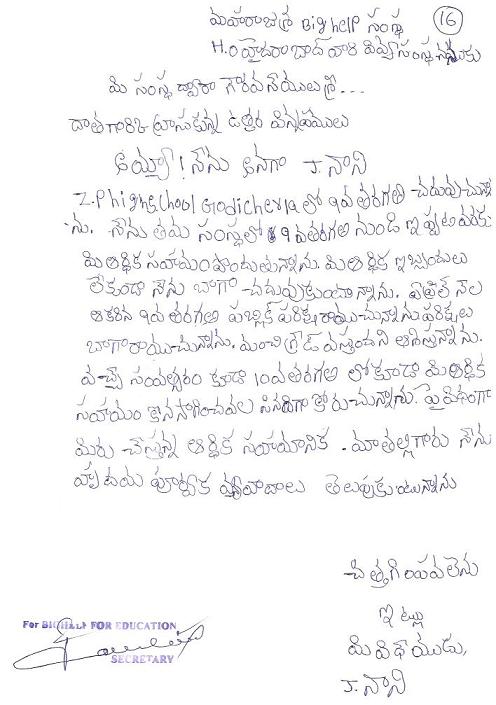 మహారాజశ్రీ Big help సంస్థ
16
H.O హైదరాబాద్ వారి దివ్య సంస్థ నకు
మి సంస్థ ద్వారా గౌరవనీయులు శ్రీ...
దాతగారికి వ్రాసుకున్న ఉత్తర విన్నపములు
అయ్యా! నేను అనగా J. నాని
Z.P high school Godicherla లో 9వ తరగతి చదువుచున్నా
ను. నేను తమ సంస్థలో 9వ తరగతి నుండి ఇప్పటి వరకు
మి ఆర్థిక సహాయం పొందుతున్నాను. మి ఆర్థిక ఇబ్బందులు
లేకుండా నేను బాగా చదువుకుంటున్నాను. ఏప్రిల్ నెల
ఆఖరిన 9వ తరగతి పబ్లిక్ పరిక్ష రాయుచున్నాను పరిక్షలు
బాగా రాయుచున్నాను. మంచి గ్రేడ్ వస్తుందని ఆశిస్తున్నాను.
వచ్చే సంవత్సరం కూడా 10వ తరగతి లో కూడా మి ఆర్థిక
సహాయం కొనసాగించవల సినదిగా కోరుచున్నాను. పై విధంగా
మిరు చేస్తున్న ఆర్థిక సహాయానికి. మా తల్లిగారు నేను
హృదయ పూర్వక ధన్యవాదాలు తెలుపుకుంటున్నాను
చిత్తగించవలెను
ఇట్లు
మి విధేయుడు,
J. నాని
For BIGHELP FOR EDUCATION
SECRETARY